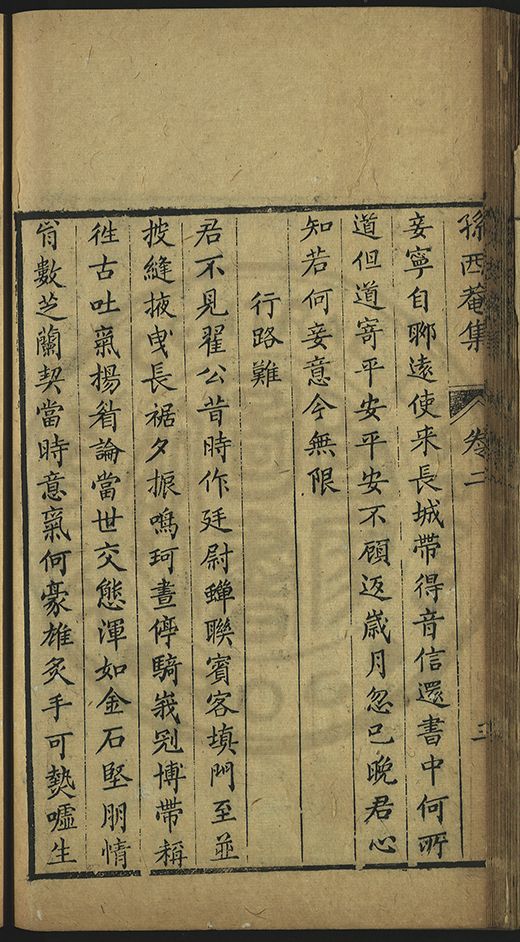 孫西菴集 卷二
妾寧自聊遠使来長城帶得音信還書中何所
道但道寄平安平安不顧返歲月忽已晚君心
知若何妾意今無限
行路難
君不見翟公昔時作廷尉蟬聯賓客填門至並
披縫掖曳長裾夕振鳴珂晝停騎峩冠博帶稱
徃古吐氣揚眉論當世交態渾如金石堅朋情
肎數芝蘭契當時意氣何豪雄炙手可㷫噓生